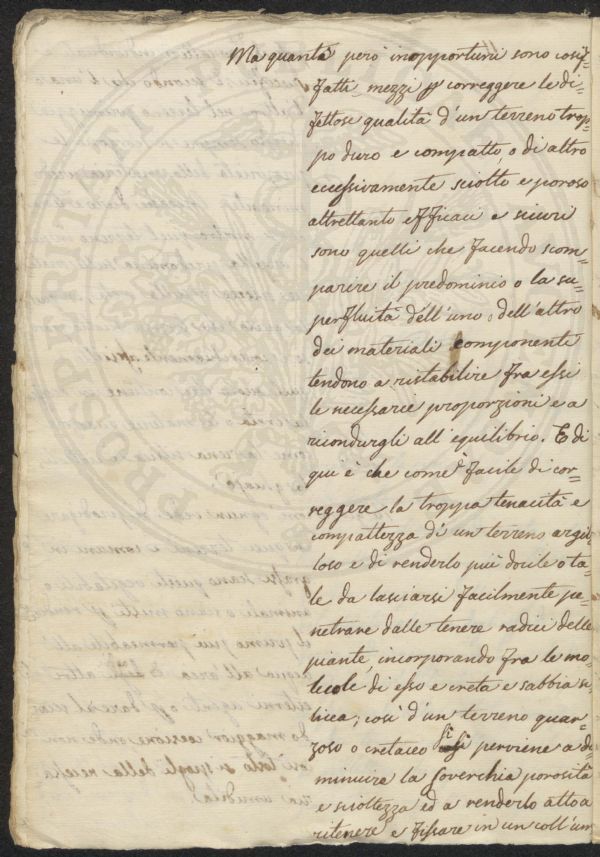 Ma quanto però inopportuni sono cosif=
fatti mezzi p correggere le di=
fettose qualità d'un terreno trop=
po duro e compatto, o di altro
eccessivamente sciolto e poroso
altrettanto efficaci e sicuri
sono quelli che facendo scom=
parire il predominio o la su=
perfluità dell'uno o dell'altro
dei materiali componenti
tendono a ristabilire fra essi
le necessarie proporzioni e a
ricondurgli all'equilibrio. E di
qui è che come è facile di cor=
reggere la troppa tenacità e
compattezza d'un terreno argil
loso e di renderlo più docile o ta=
le da lasciarsi facilmente pe=
netrare dalle tenere radici delle
piante, incorporando fra le mo=
lecole di esso e creta e sabbia si=
licea; così d'un terreno quar=
zoso o cretaceo si perviene a di
minuire la soverchia porosità
e scioltezza ed a renderlo atto a
ritenere e fissare in un coll'um
PROSPERITA